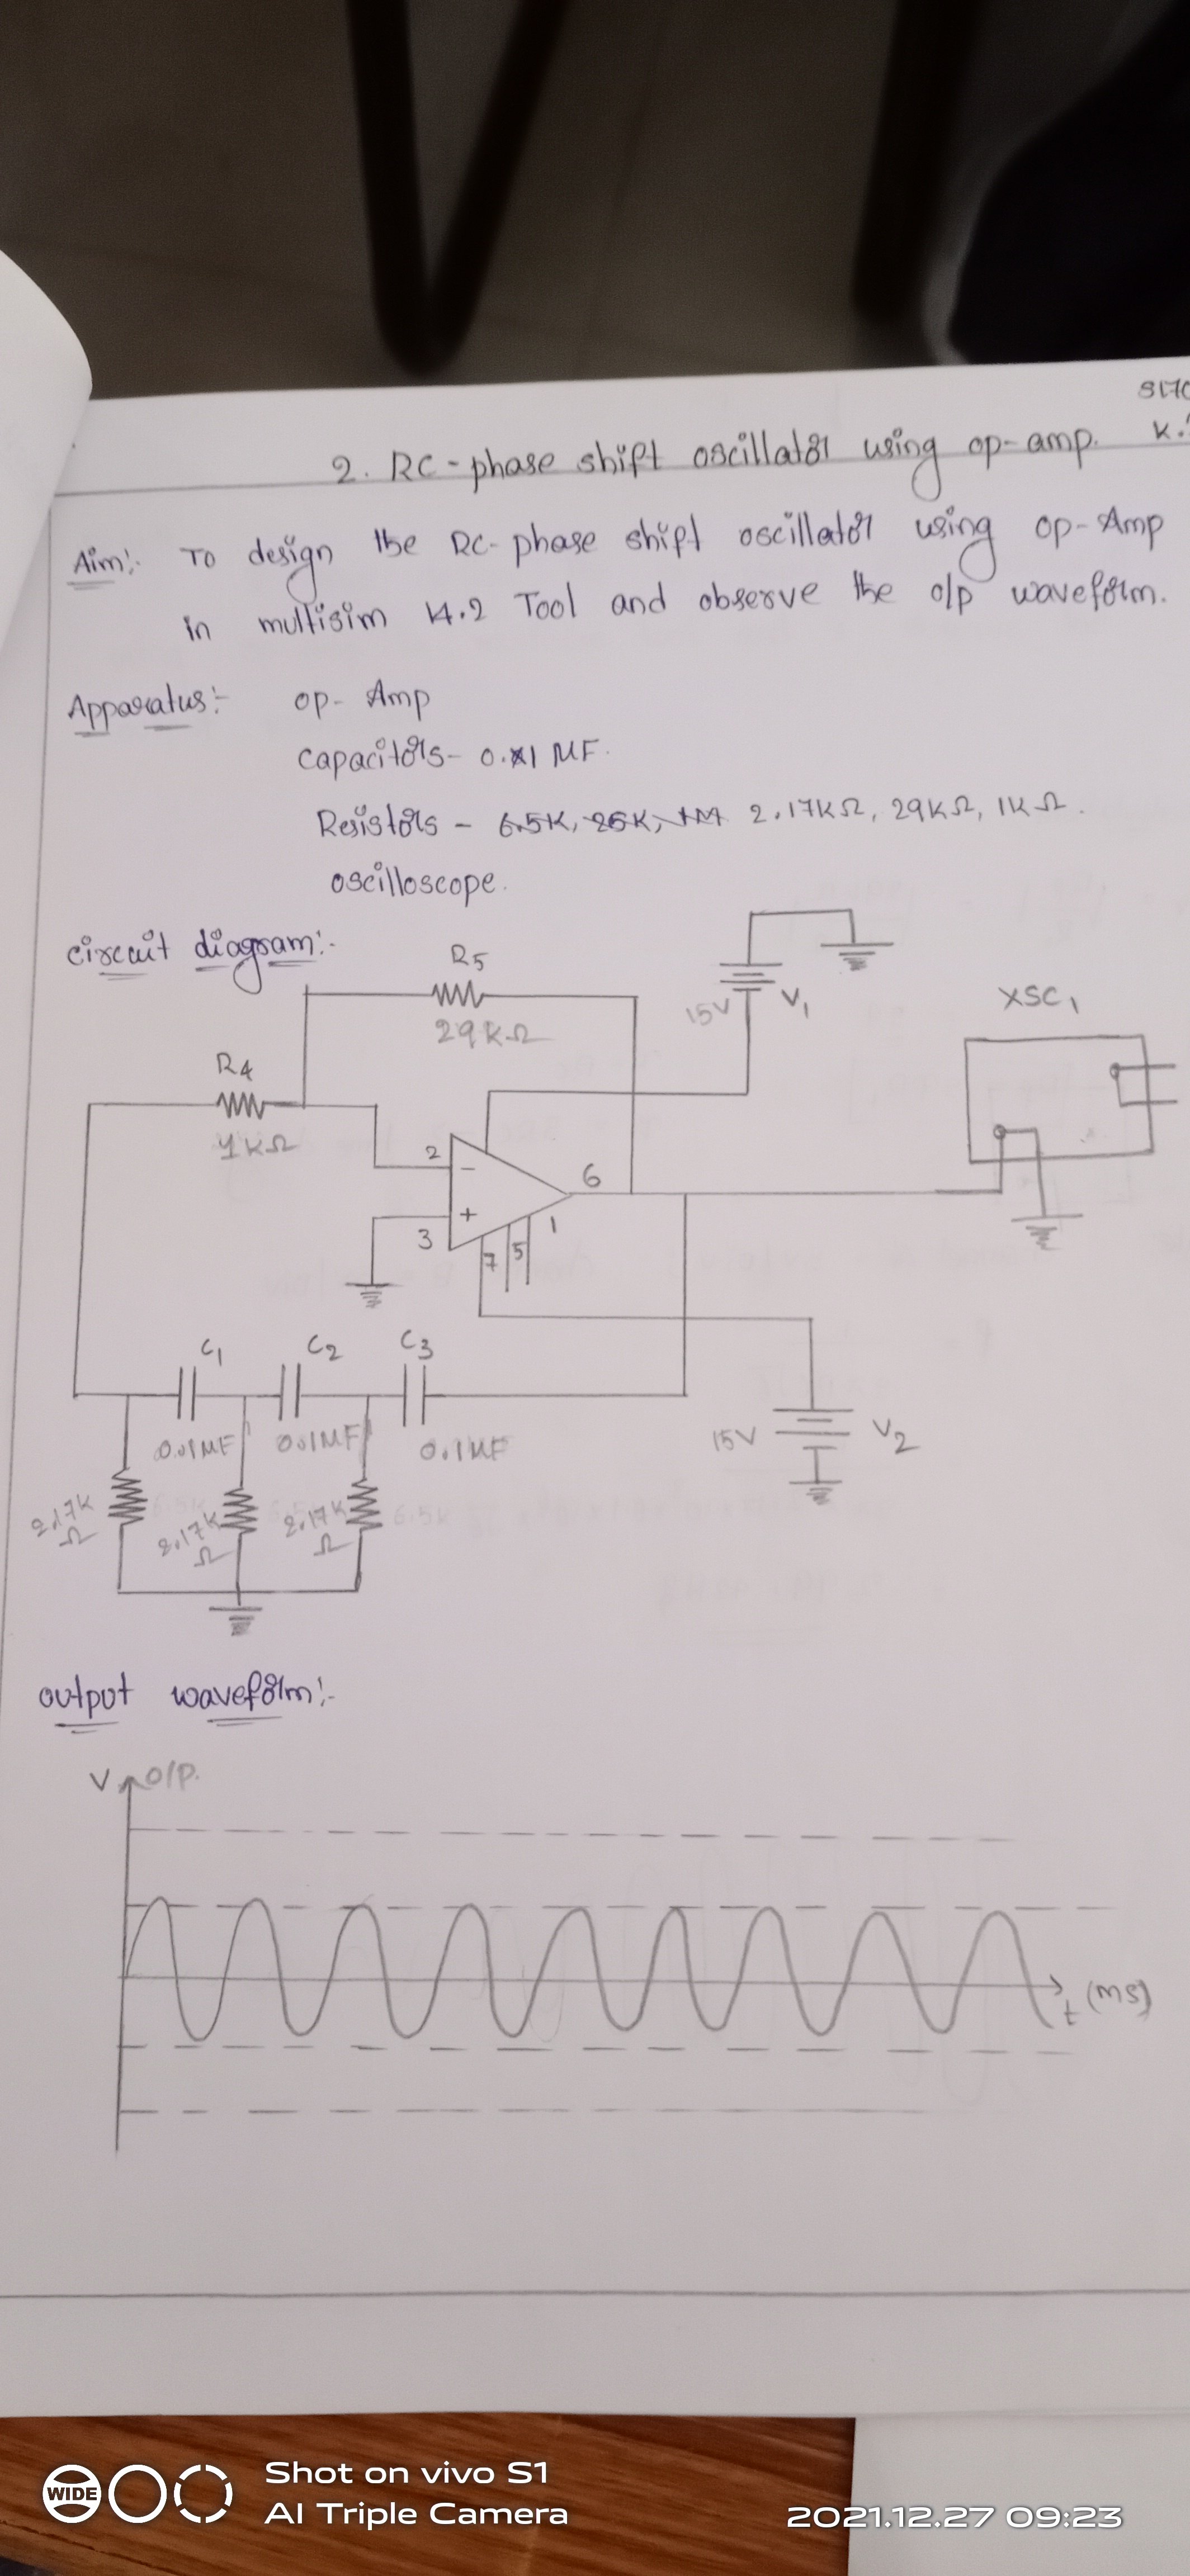 2. RC-phase shift oscillator using op-amp.
Aim:- To design the RC-phase shift oscillator using op-Amp
in multisim 14.2 Tool and observe the o/p waveform.
Apparatus:- op-Amp
Capacitors- 0.1 MF.
Resistors - 6.5K, 26K, 1M 2.17KΩ, 29KΩ, 1KΩ.
oscilloscope.
circuit diagram:-
R5
29KΩ
15V V1
XSC1
R4
1KΩ
2
-
6
+
3
7 5 1
C1 C2 C3
0.01MF 0.01MF 0.1MF
15V V2
2.17K Ω
2.17K Ω
2.17K Ω
output waveform:-
V O/P.
t (ms)
WIDE
Shot on vivo S1
AI Triple Camera
2021.12.27 09:23